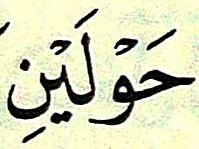 حَوْلَيْنِ